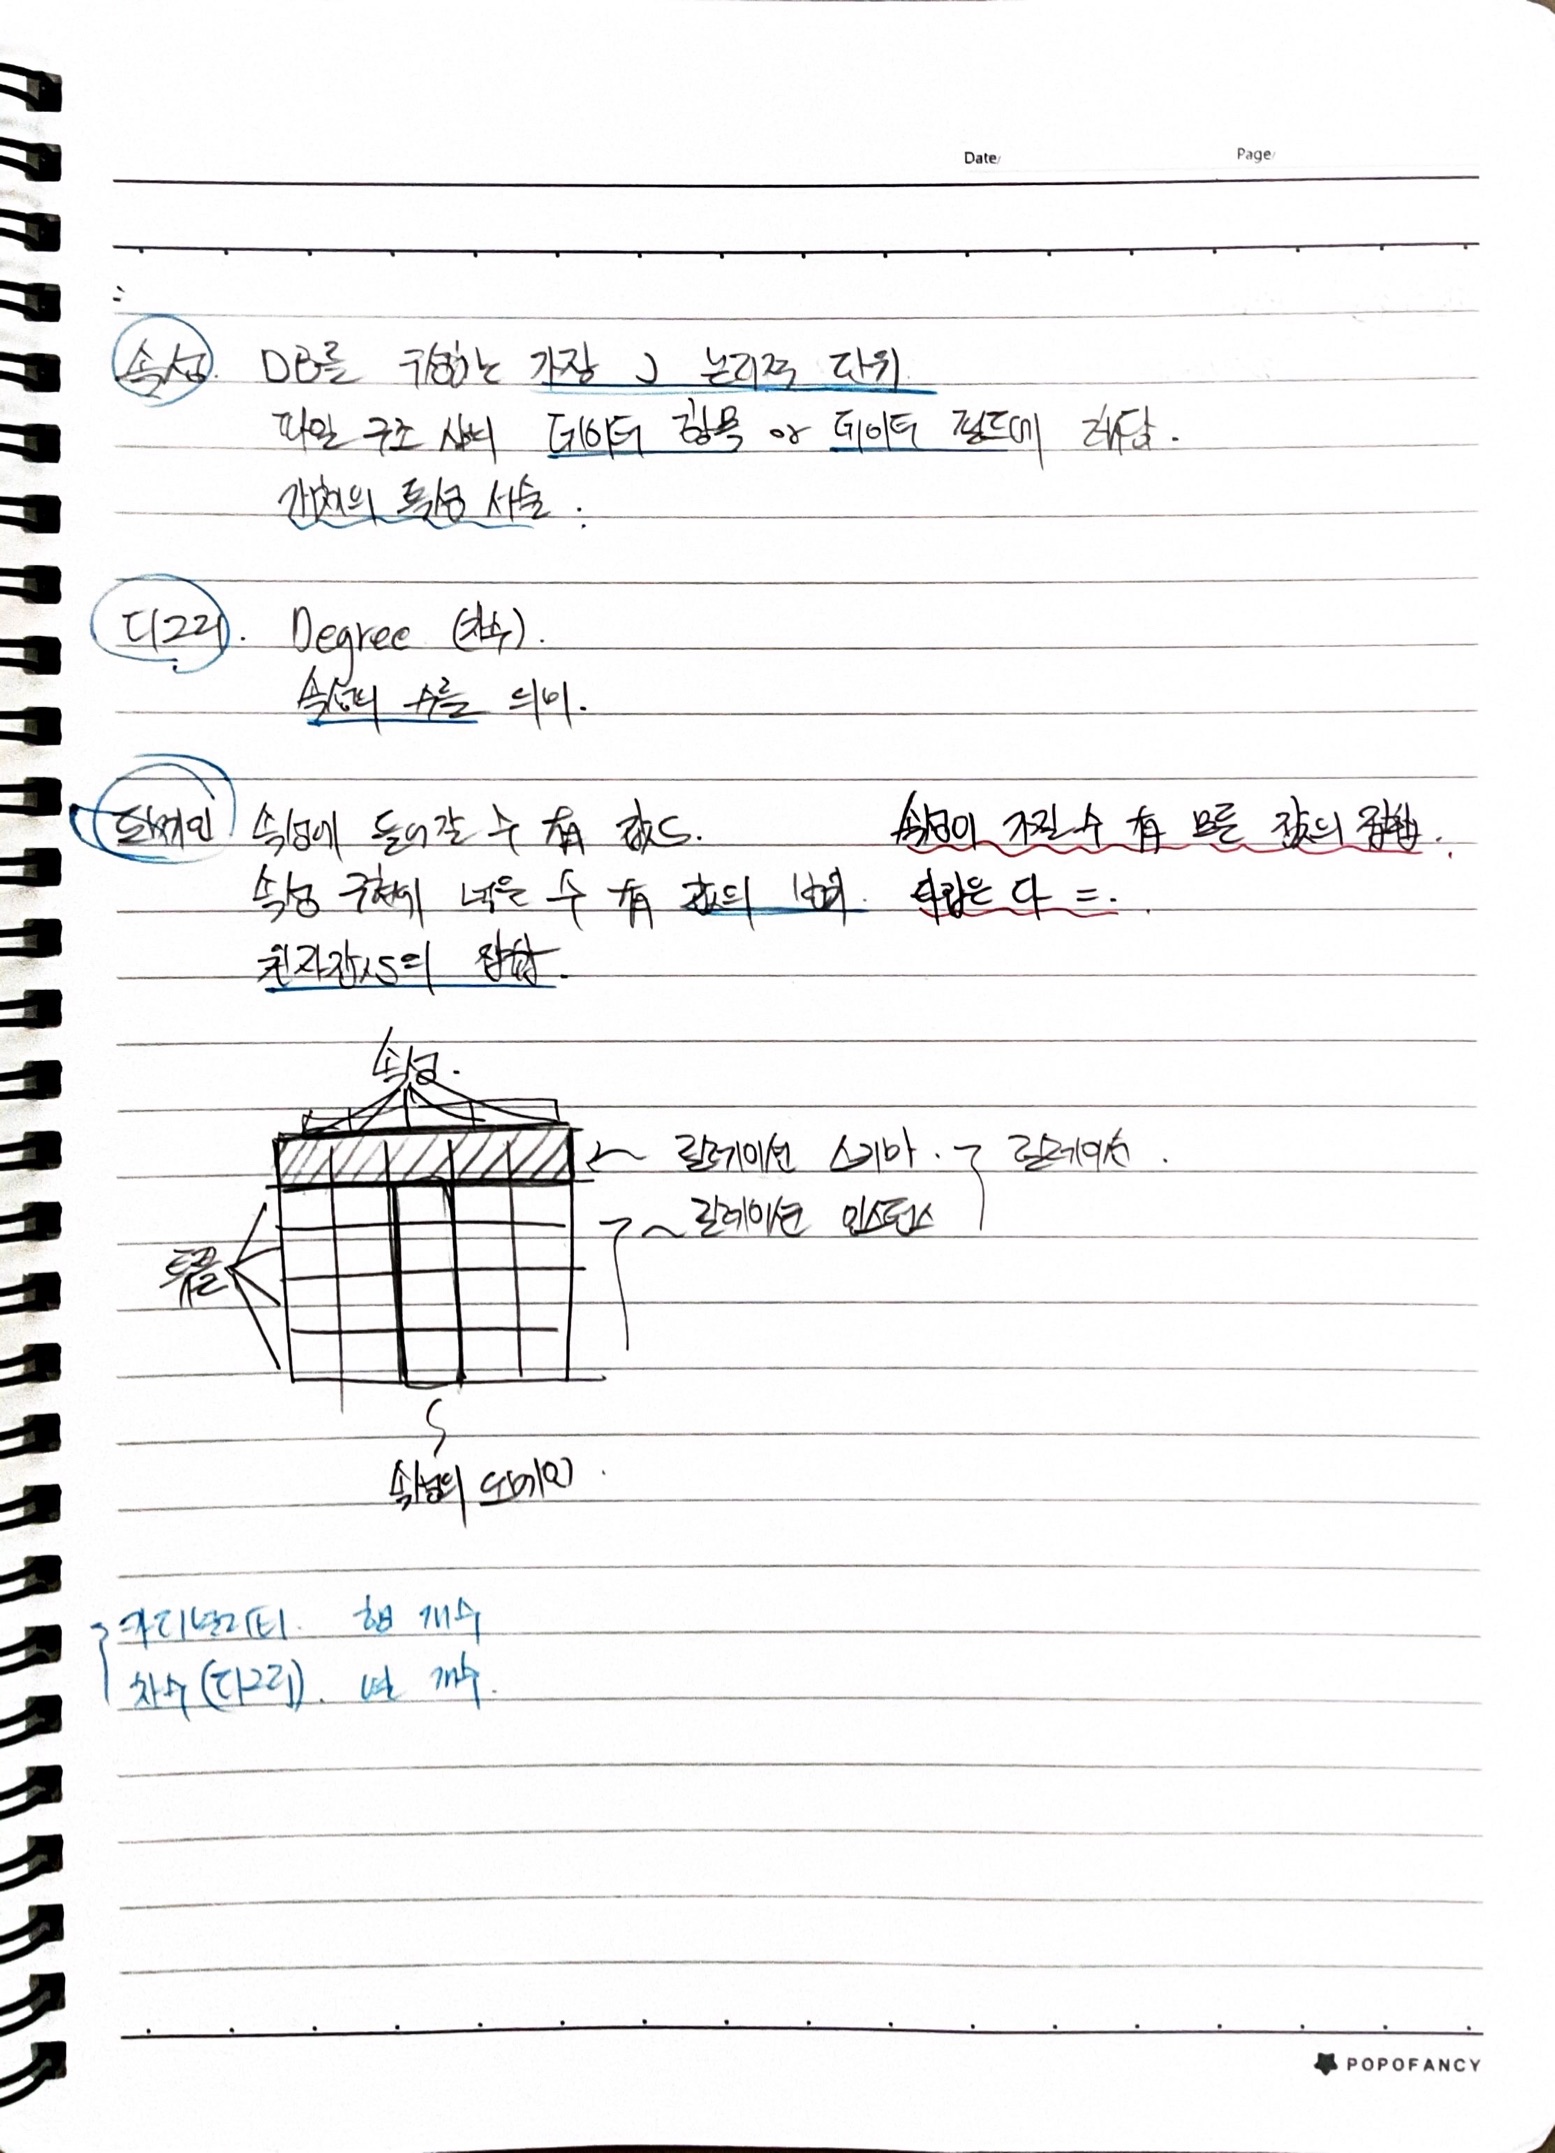 Date Page
속성. DB를 구성하는 가장 小 논리적 단위
파일 구조 상의 데이터 항목 or 데이터 필드에 해당.
개체의 특성 서술.
디그리. Degree (차수).
속성의 수를 의미.
도메인 속성에 들어갈 수 有 값s. 속성이 가질 수 有 모든 값의 집합.
속성 구현에 넣을 수 有 값의 범위. 타입은 다 =.
원자값s의 집합.
속성.
릴레이션 스키마. 릴레이션.
릴레이션 인스턴스
튜플
속성의 도메인.
카디널리티. 행 개수
차수(디그리). 열 개수.
POPOFANCY